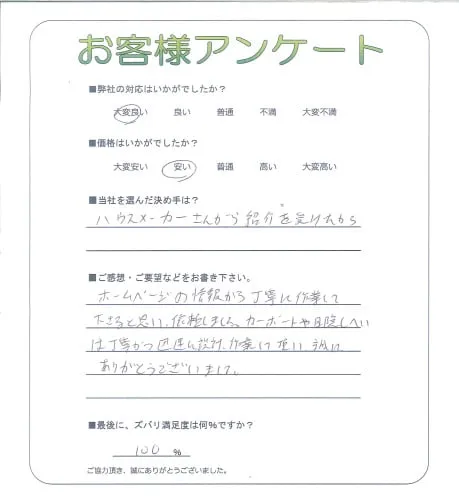 お客様アンケート
■弊社の対応はいかがでしたか？
大変良い 良い 普通 不満 大変不満
■価格はいかがでしたか？
大変安い 安い 普通 高い 大変高い
■当社を選んだ決め手は？
ハウスメーカーさんから紹介を受けたから
■ご感想・ご要望などをお書き下さい。
ホームページの情報から丁寧に作業して
下さると思い、依頼しました。カーポートや目隠しへい
は丁寧かつ迅速に設計、作業して頂い、誠に
ありがとうございました。
■最後に、ズバリ満足度は何%ですか？
100 %
ご協力頂き、誠にありがとうございました。